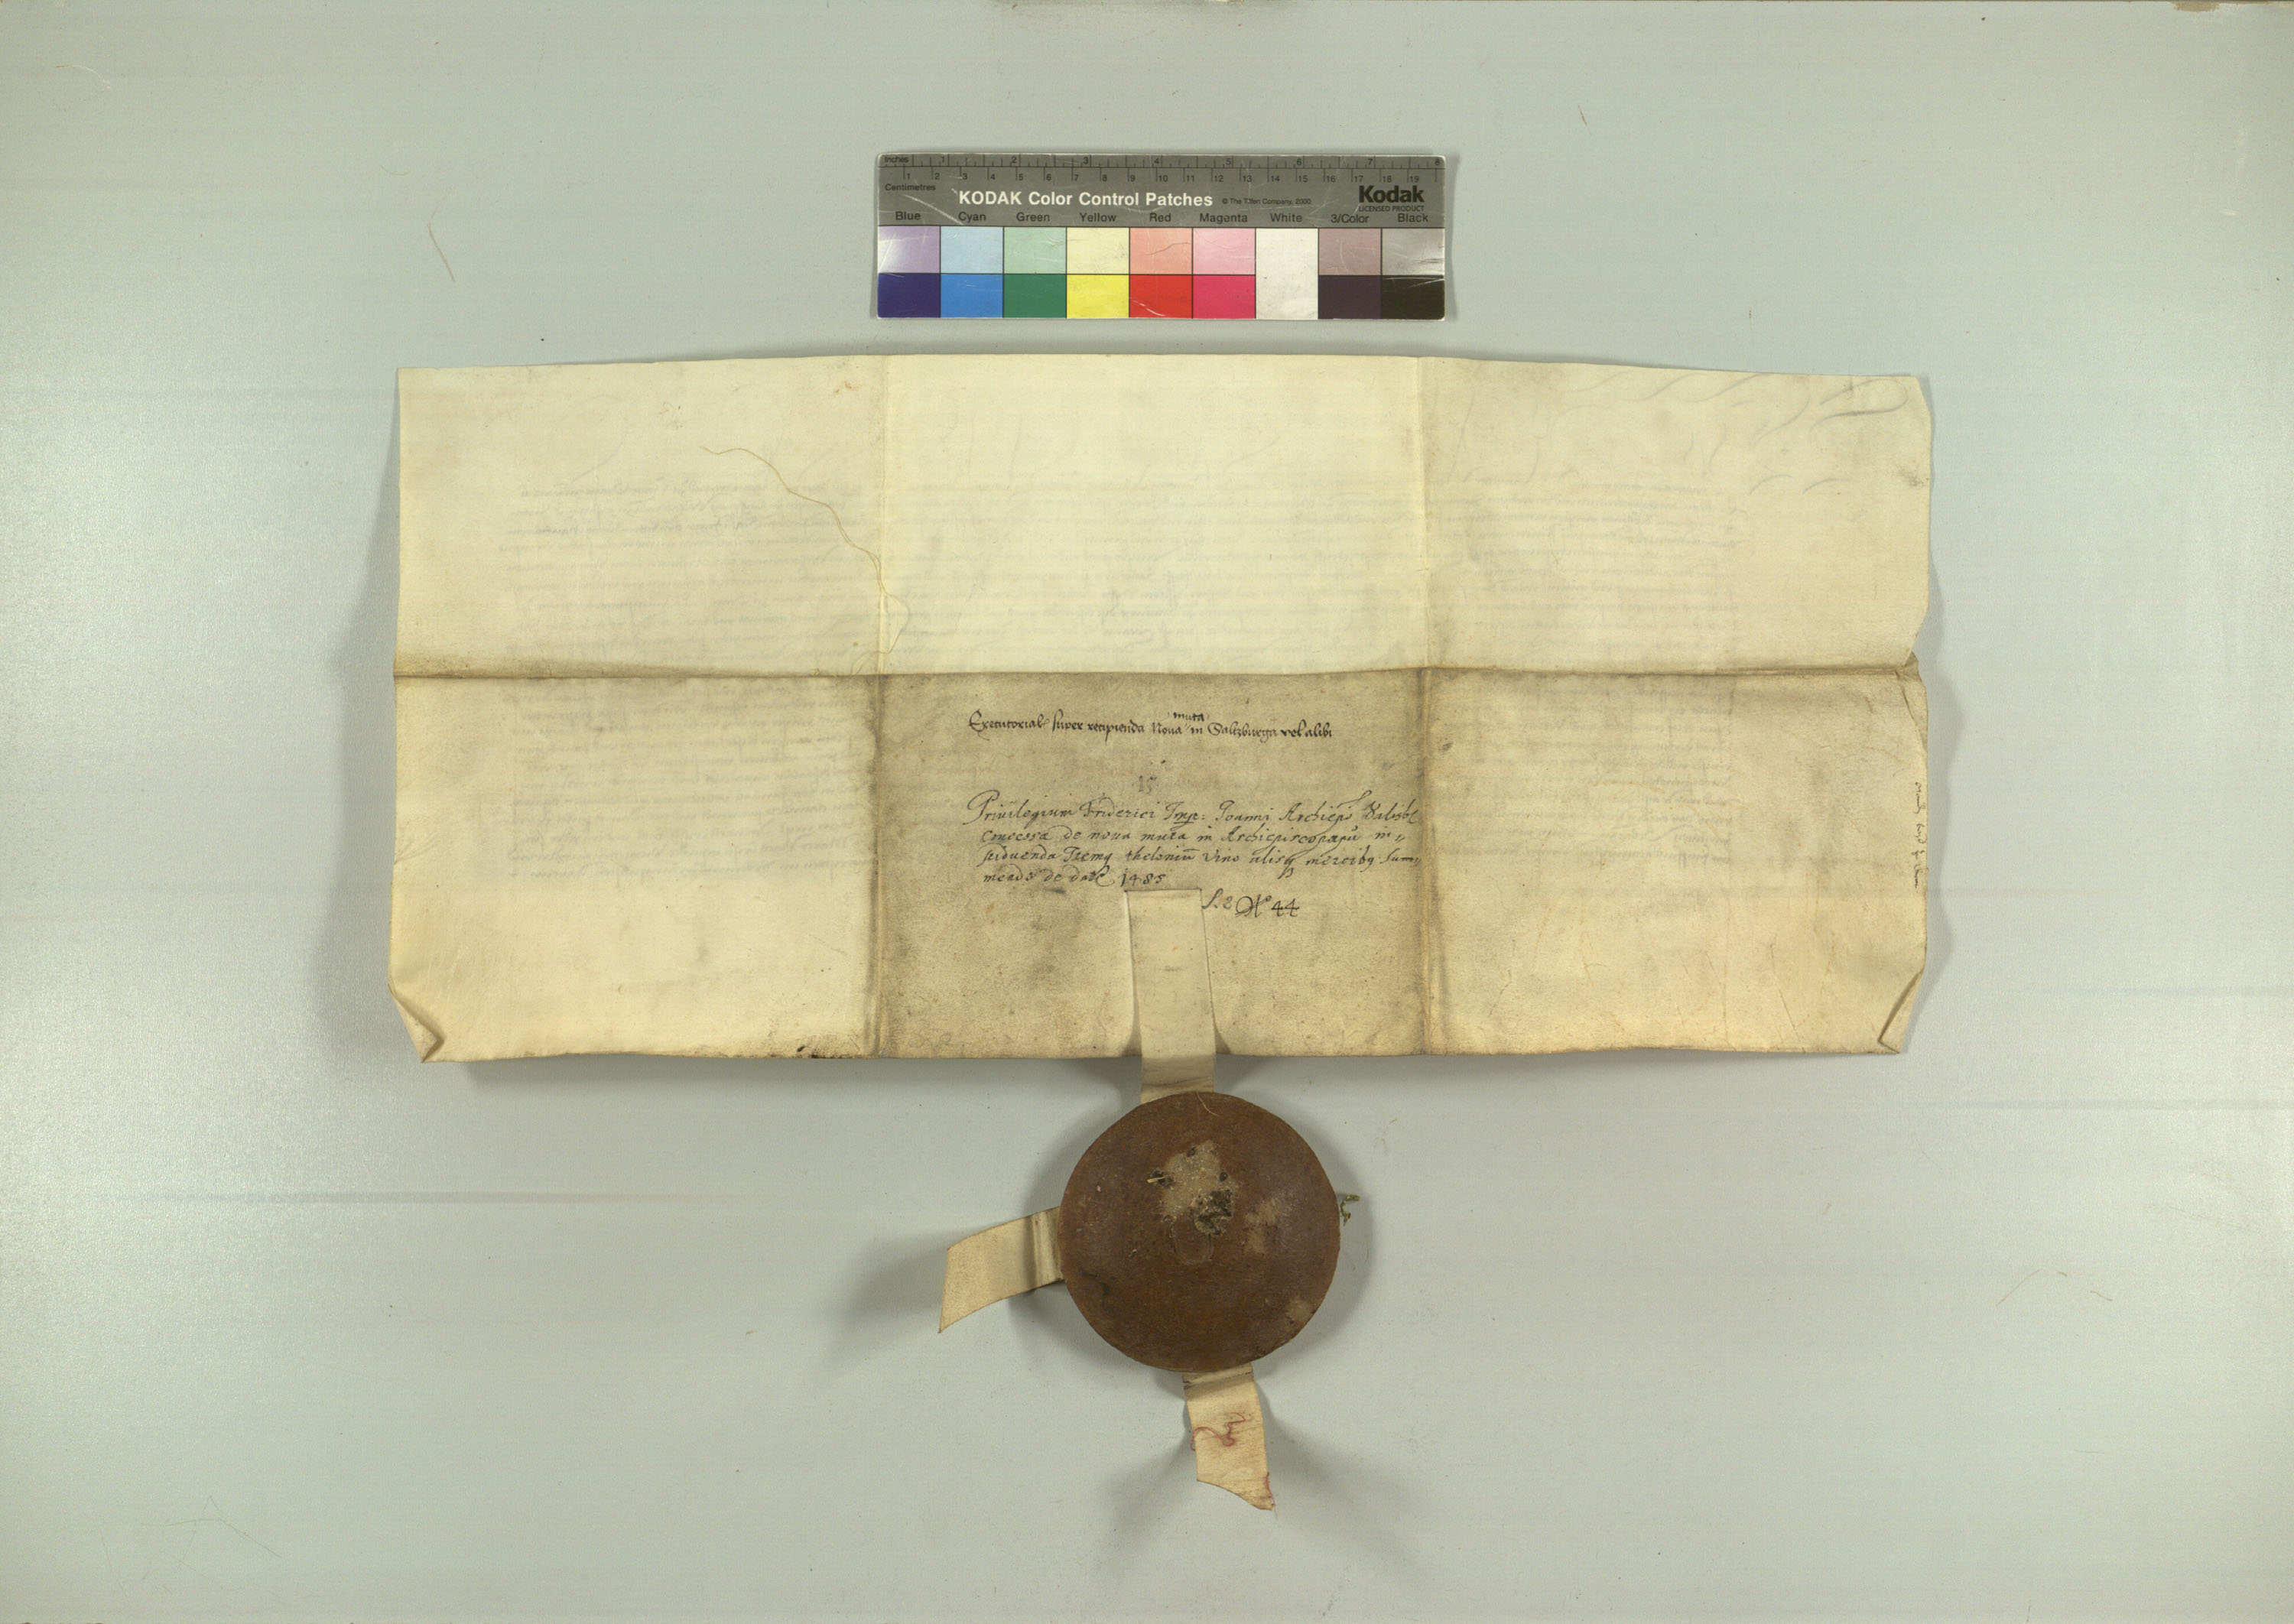 Inches 1 2 3 4 5 6 7 8
Centimetres 1 2 3 4 5 6 7 8 9 10 11 12 13 14 15 16 17 18 19
KODAK Color Control Patches © The Tiffen Company, 2000 Kodak
LICENSED PRODUCT
Blue Cyan Green Yellow Red Magenta White 3/Color Black
muta
Executorial super recipienda Noua in Saltzburga vel alibi
15
Priuilegium Friderici Imp: Joanni Archiepō Salisb
concessa de noua muta in Archiepiscopatu in
thelonium vino alisq mercibq
de dato 1485
S. 2 No 44